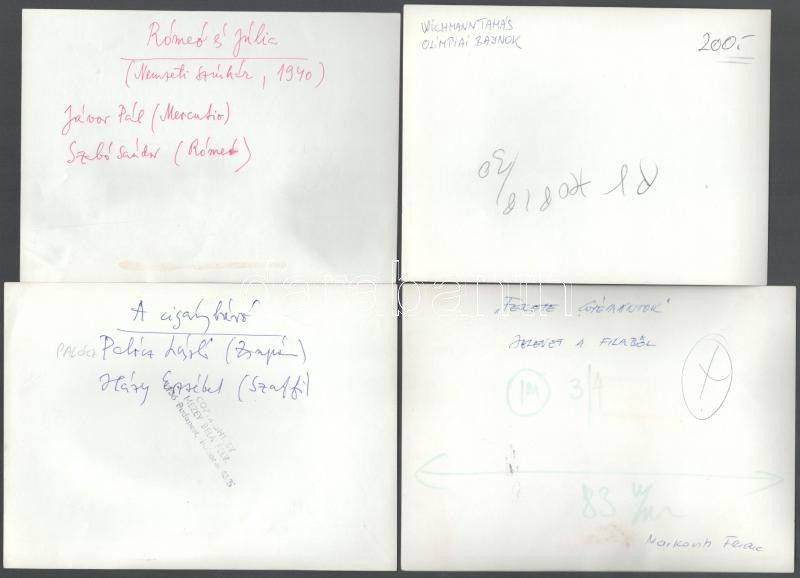 Rómeó és Júlia
(Nemzeti Színház, 1940)
Jávor Pál (Mercutio)
Szabó Sándor (Rómeó)
WICHMANN TAMÁS
OLIMPIAI BAJNOK
200.-
A cigánybáró
PALÓCZ Palócz László (Zsupán)
Házy Erzsébet (Szaffi)
COPYRIGHT BY
MEZEY BÉLA
"FEKETE GYÉMÁNTOK"
JELENET A FILMBŐL
1M 3/4
83 m/m
Markovits Ferenc
darabanth